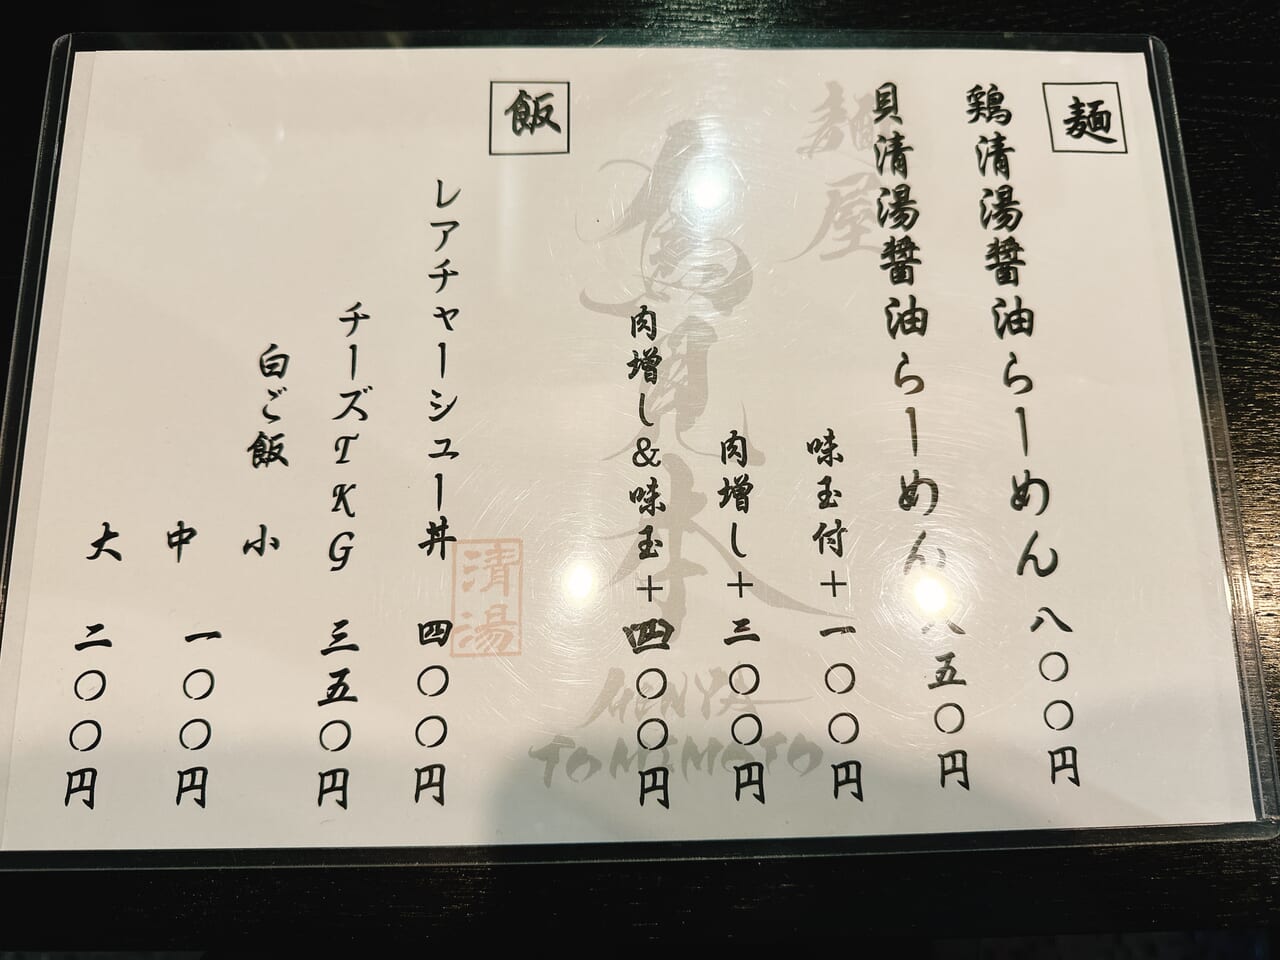 麺
鶏清湯醤油らーめん 八〇〇円
貝清湯醤油らーめん 八五〇円
味玉付+ 一〇〇円
肉増し+ 三〇〇円
肉増し&味玉+ 四〇〇円
飯
レアチャーシュー丼 四〇〇円
チーズTKG 三五〇円
白ご飯 小
中 一〇〇円
大 二〇〇円
麺屋
見本
MENYA
TOMIMOTO
清湯